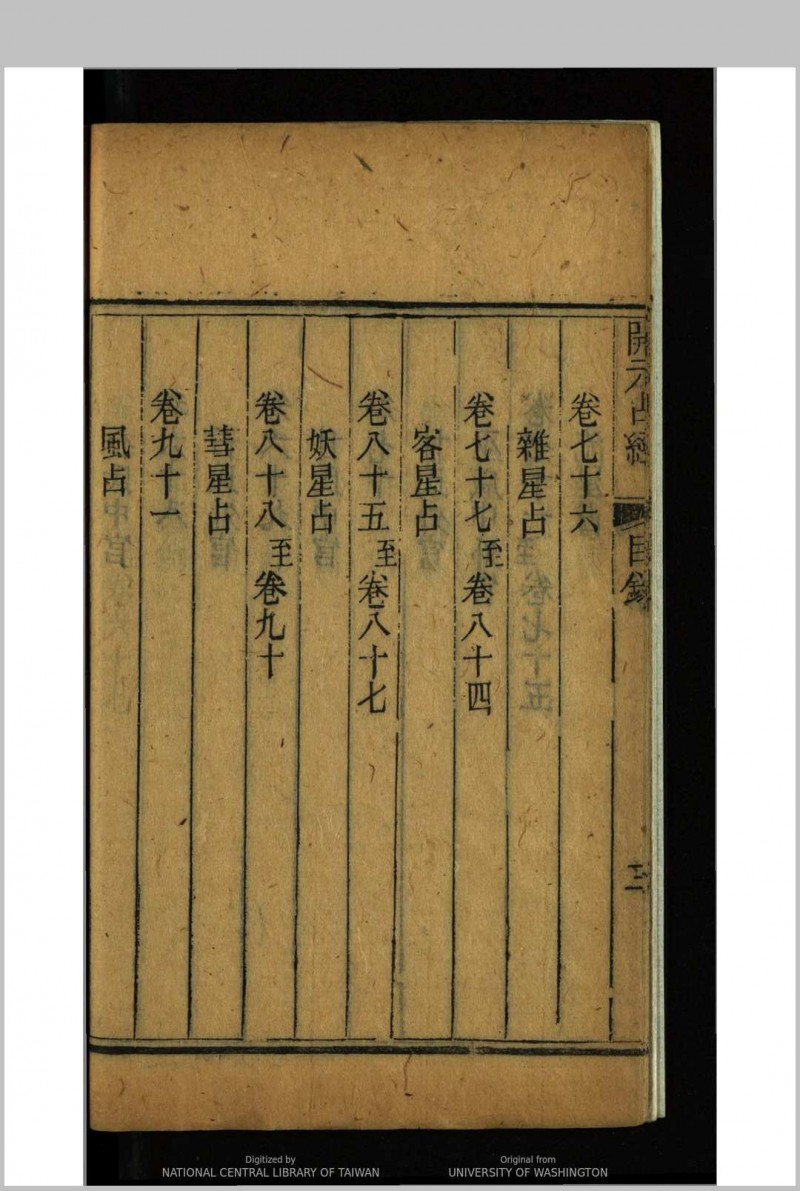 開元占經 目錄
卷七十六
雜星占
卷七十七至卷八十四
客星占
卷八十五至卷八十七
妖星占
卷八十八至卷九十
彗星占
卷九十一
風占
Digitized by
NATIONAL CENTRAL LIBRARY OF TAIWAN
Original from
UNIVERSITY OF WASHINGTON